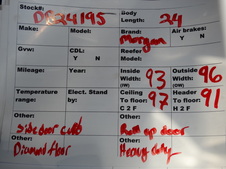 Stock#: Body Length: 24
Make: Model: Brand: Morgan Air brakes: Y N
Gvw: CDL: Y N Reefer Model:
Mileage: Year: Inside Width (IW) 93 Outside Width (OW) 96
Temperature range: Elect. Stand by: Ceiling To floor: C 2 F 97 Header To floor: H 2 F 91
Other: Side door curb Other: Roll up door
Other: Diamond floor Other: Heavy duty